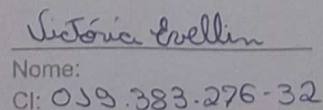 Victória Evellin
Nome:
CI: 019.383.276-32